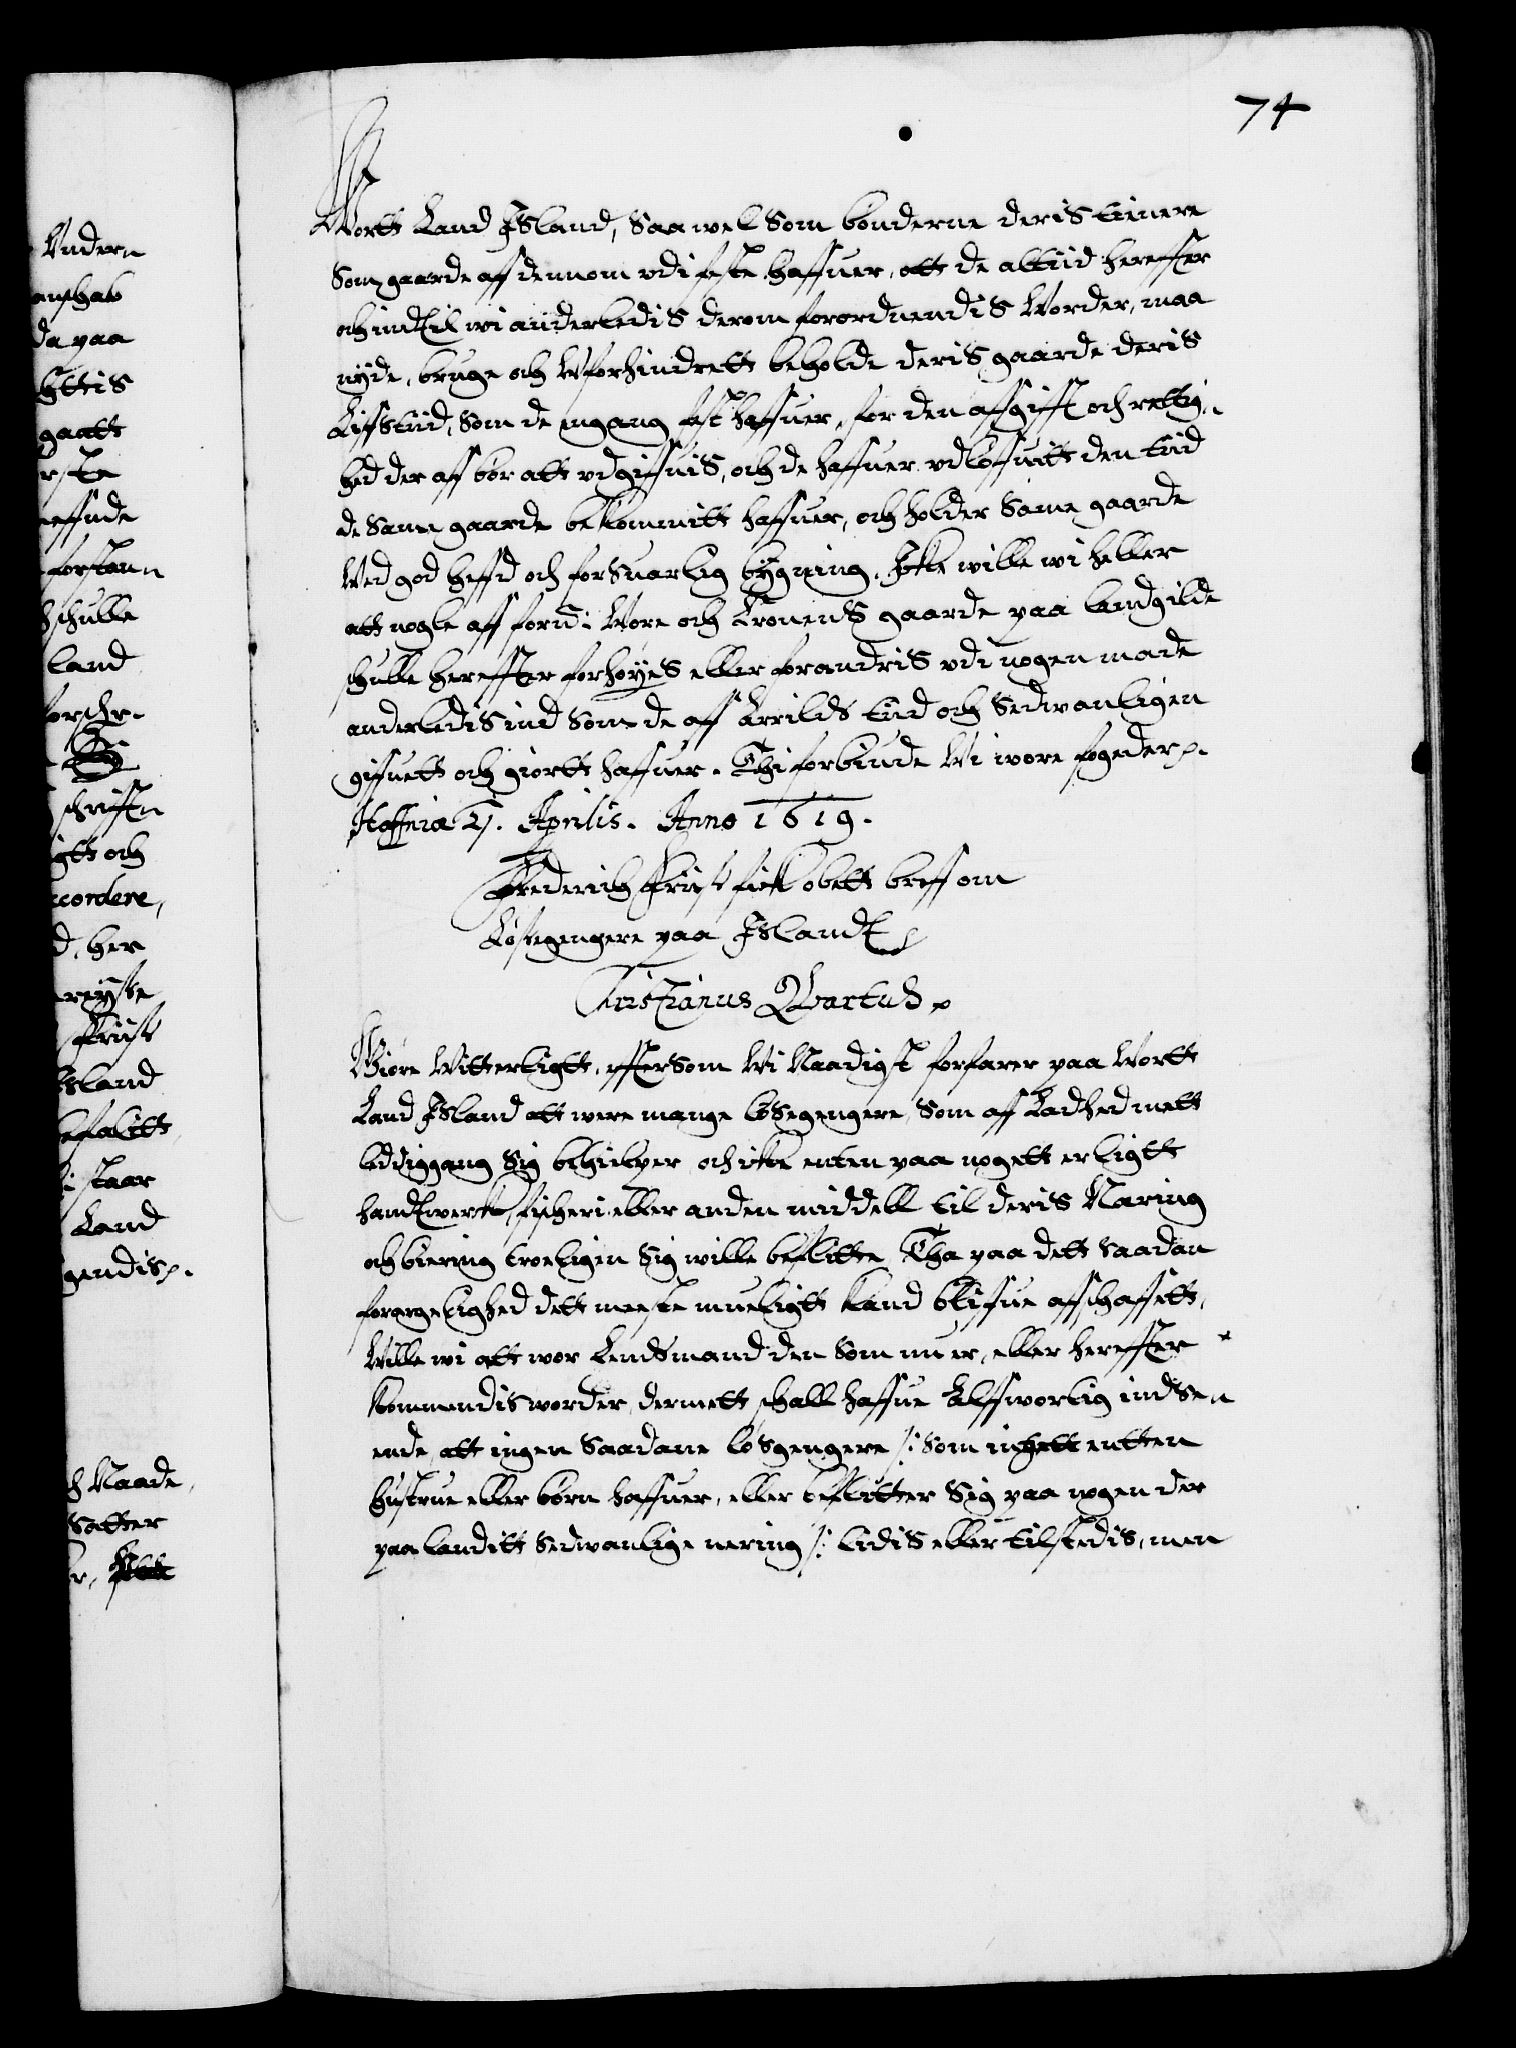 74
Wortt Land Jsland, Saa wel Som bønderne deris tienere
Som gaarde aff dennom vdi feste haffuer, att de altiid hereffter
och indtil wi anderledis derom forordnendis Worder, maa
nyde, bruge och Wforhindrett beholde deris gaarde deris
Liffstiid, Som de engang fest haffuer, for den affgifft och rettig-
hed der aff bør att vdgiffuis, och de haffuer vdloffuitt den tiid
de Samme gaarde bekommitt haffuer, och holder Same gaarde
Wed god heffd och forsuarlig bygning. Icke wille wi heller
att nogle aff fornd: Wore och Cronens gaarde paa landgilde
schulle hereffter forhøyes eller forandris vdi nogen maade
anderledis ind Som de aff Arrilds tiid och Sedwanligen
giffuett och giortt haffuer. Thi forbiude Wi wore fogeder p.
Haffniæ Aprilis. Anno 1619.
Frederich Friis fick obett breff om
Løsegengere paa Jslandt
Christianus Qvartus p
Giøre Witterligtt, efftersom Wi Naadigst forfarer paa Wortt
Land Jsland att were mange løsegengere, Som aff Ladhed mett
leddiggang Sig behielper och icke enten paa nogett erligtt
handtwerck, fischeri eller anden middell til deris Næring
och biering troeligen Sig wille beflitte Tha paa dett saadan
forargelighed dett meste mueligtt kand bliffue affschaffett,
Wille wi att wor Lendsmand den Som nu er, eller hereffter
kommendis worder, dermett schall haffue Alffworlig indseen
ende, att ingen Saadane løsgengere /: Som enten
hustrue eller børn haffuer, eller beflitter Sig paa nogen der
paa landitt Sedwanlige nering :/ lidis eller tilstedis, men
Vndern
da paa
gaatt
schulle
land
schrifften
och
her
Friis
Jsland
befalitt
staar
Land
gendis p.
Naade